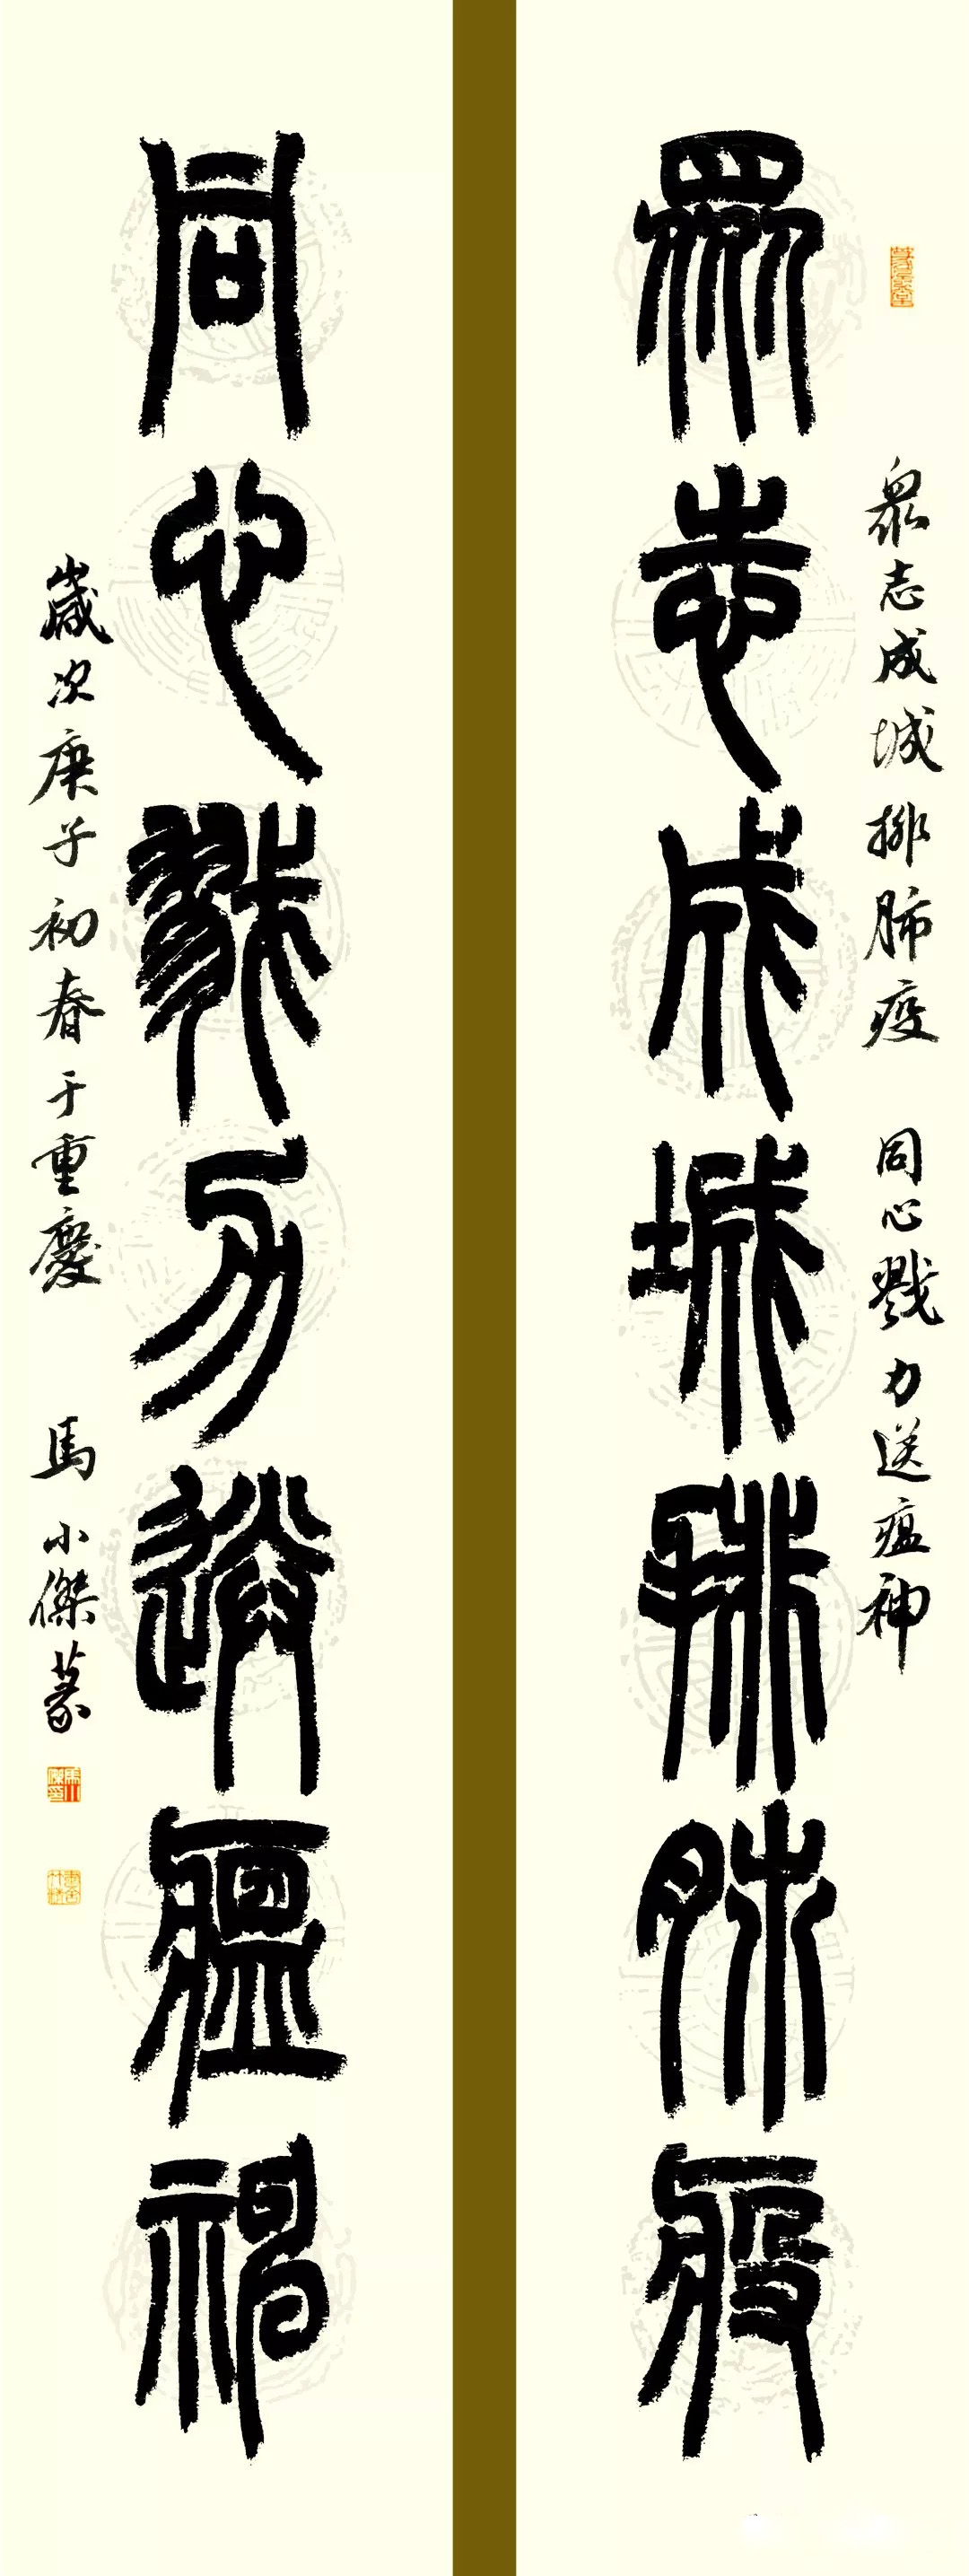 眾志成城排肺疫
眾志成城排肺疫 同心戮力送瘟神
同心戮力送瘟神
歲次庚子初春于重慶 馬小傑篆